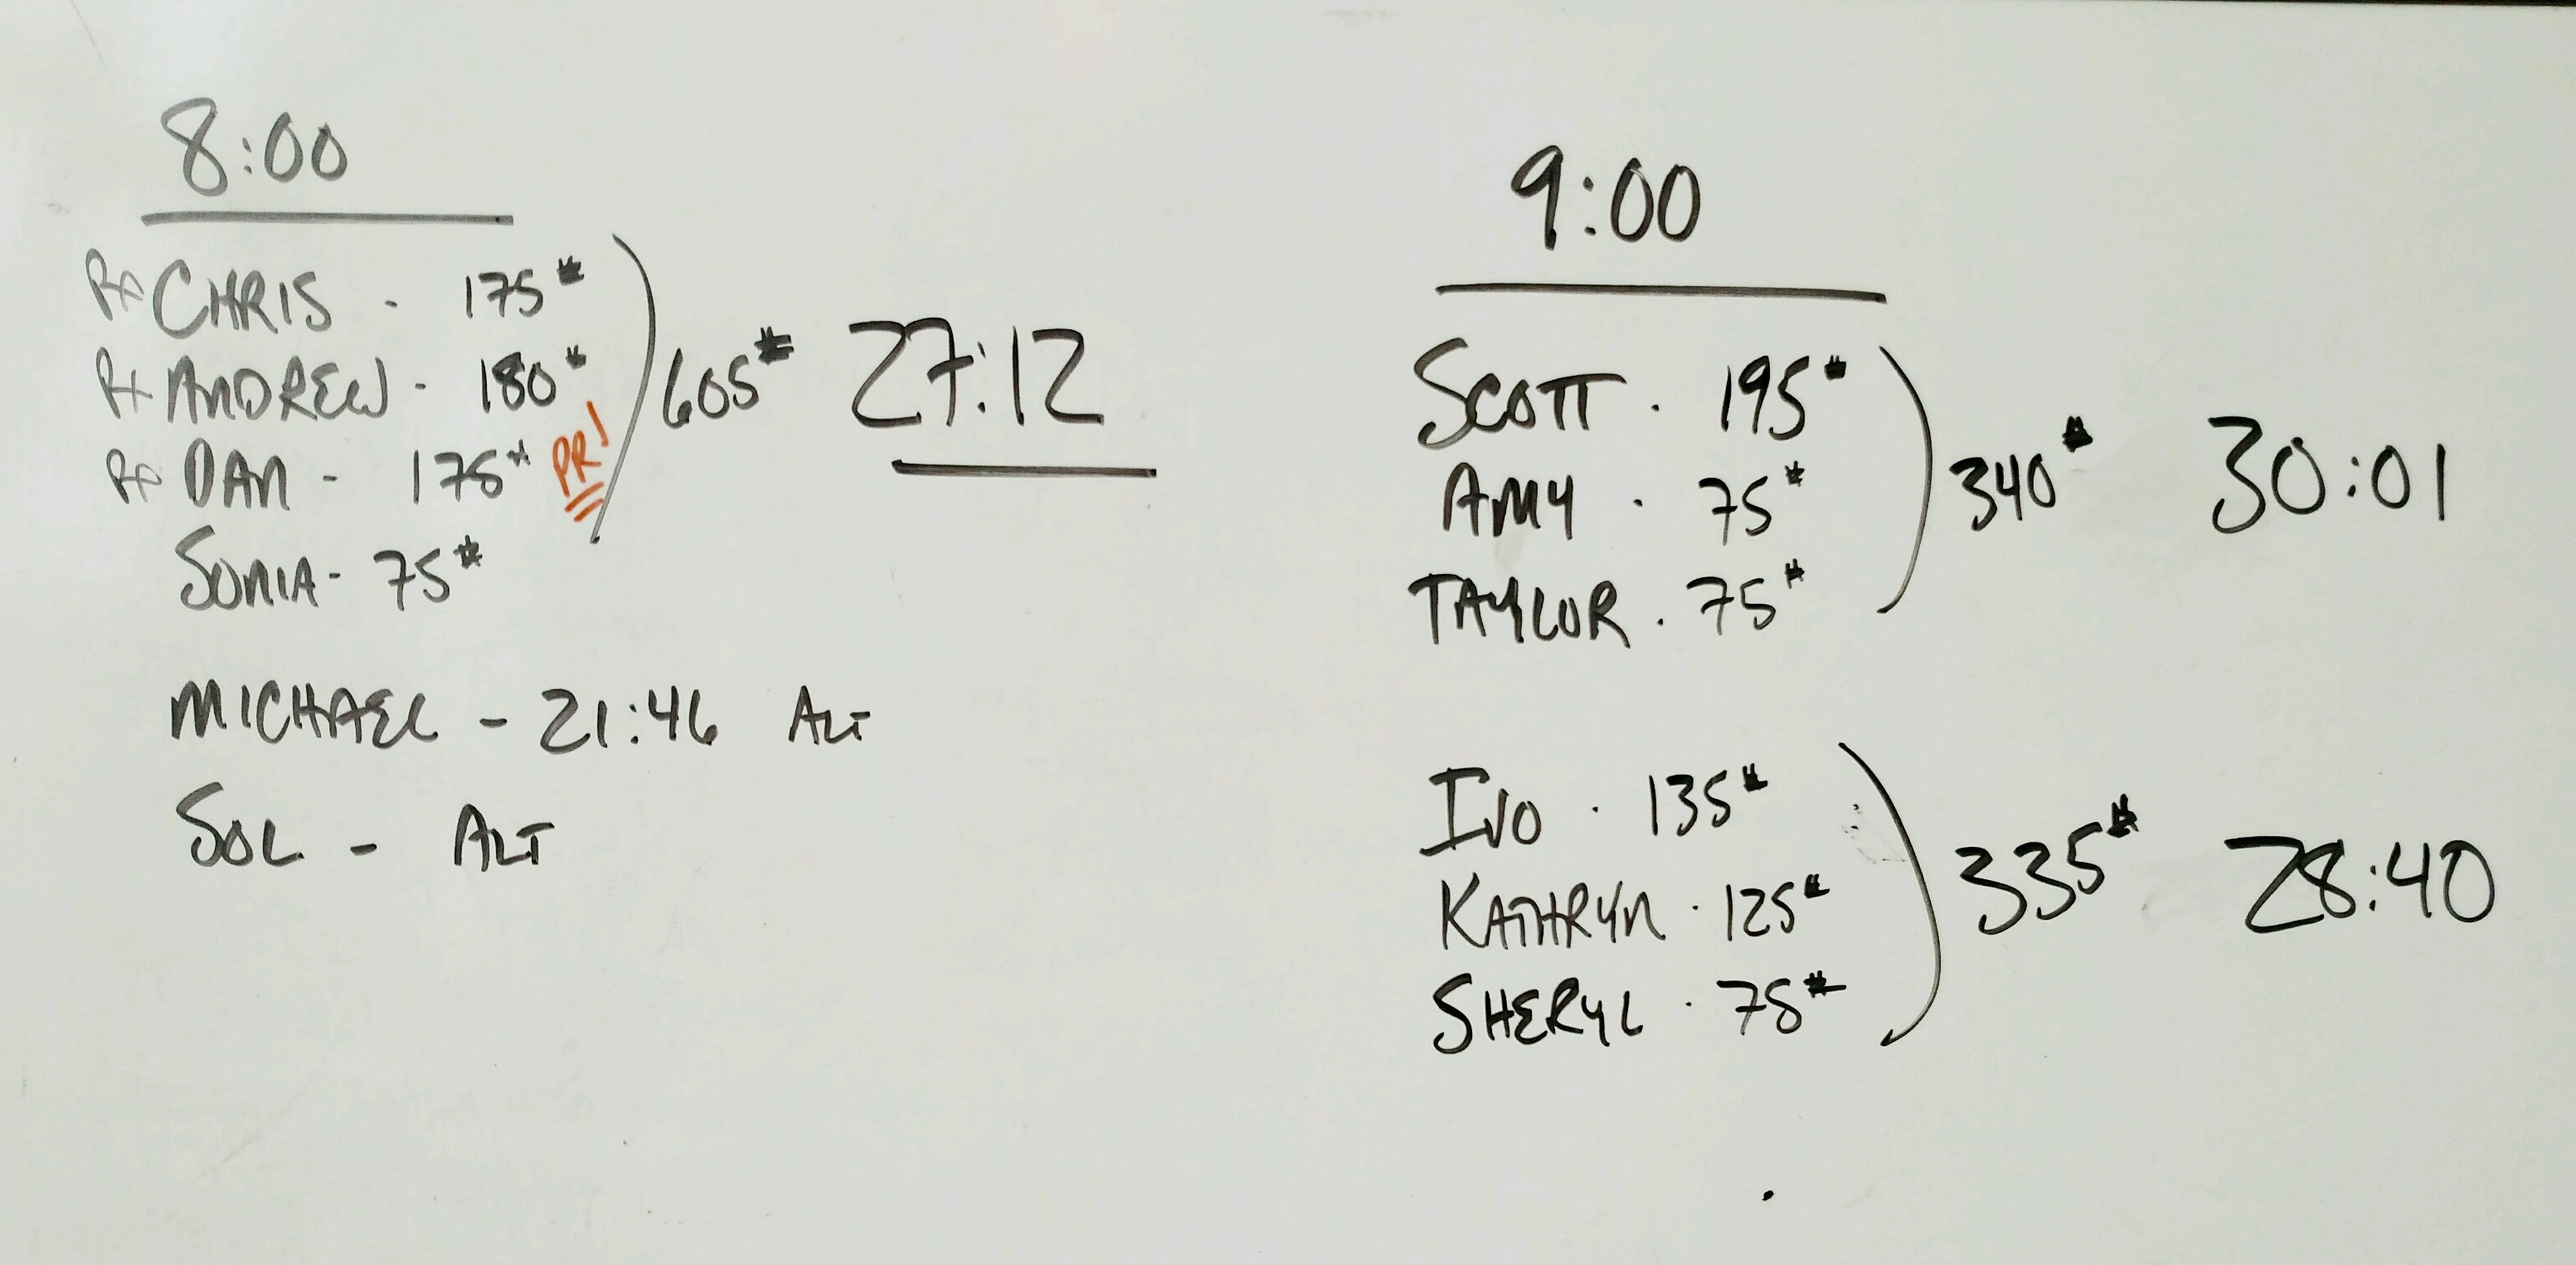 8:00
Rx CHRIS - 175#
Rx ANDREW - 180#
Rx DAN - 175# PR!
SONIA - 75#
605# 27:12
MICHAEL - 21:46 ALT
SOL - ALT
9:00
SCOTT . 195#
AMY . 75#
TAYLOR . 75#
340# 30:01
IVO . 135#
KATHRYN . 125#
SHERYL . 75#
335# 28:40